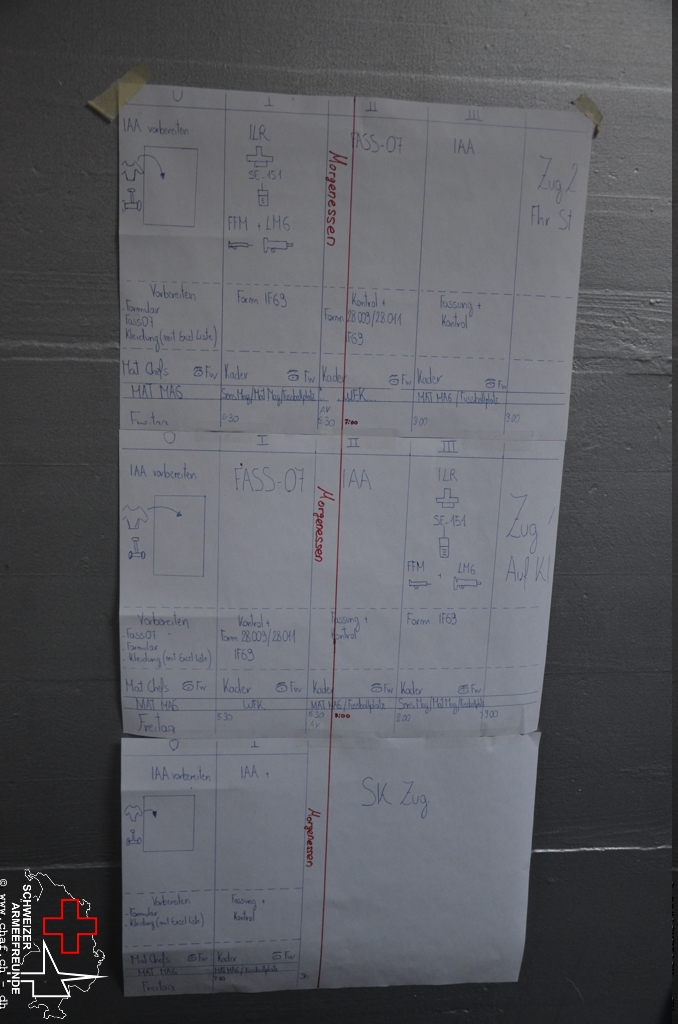 0 I II III
IAA vorbereiten
ILR
SE-151
FFM + LMG
Morgenessen
FASS-07
IAA
Zug 2
Fhr St
Vorbereiten
- Formular
- Fass07
- Kleidung (mit Excel Liste)
Form IF69
Kontrol +
Form 28.009/28.011
IF69
Fassung +
Kontrol
Mat Chefs Fw
Kader Fw
Kader Fw
Kader Fw
MAT MAG
San Mag/Mat Mag/Fussballplatz
WFK
MAT MAG / Fussballplatz
Freitag
5:30
7:00
8:00
9:00
0 I II III
IAA vorbereiten
FASS-07
Morgenessen
IAA
ILR
SE-151
FFM + LMG
Zug 1
Auf Kl
Vorbereiten
- Fass07
- Formular
- Kleidung (mit Excel Liste)
Kontrol +
Form 28.009/28.011
IF69
Fassung +
Kontrol
Form IF69
Mat Chefs Fw
Kader Fw
Kader Fw
Kader Fw
MAT MAG
WFK
MAT MAG / Fussballplatz
San Mag/Mat Mag/Fussballplatz
Freitag
5:30
6:30
7:00
8:00
9:00
0 I
IAA vorbereiten
IAA +
Morgenessen
SK Zug
Vorbereiten
- Formular
- Kleidung (mit Excel Liste)
Fassung +
Kontrol
Mat Chefs Fw
Kader Fw
MAT MAG
MAT MAG / Fussballplatz
Freitag
SCHWEIZER
ARMEEFREUNDE
© www.chaf.ch - dh